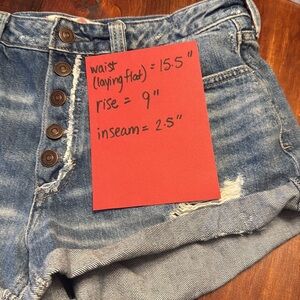 waist
(laying flat) = 15.5"
rise = 9"
inseam = 2.5"